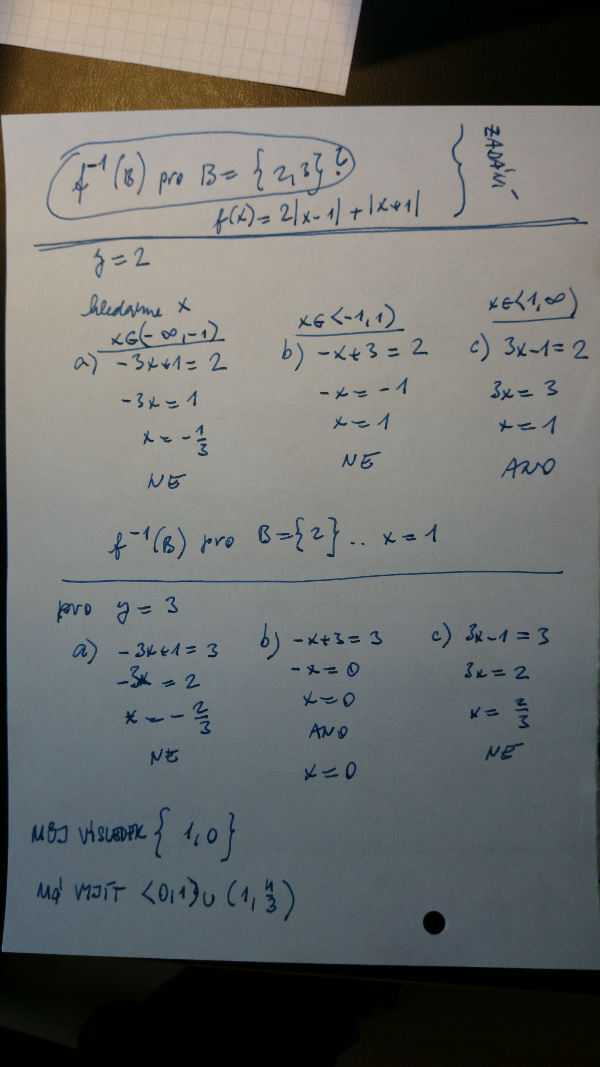 f⁻¹(B) pro B = {2,3}?
ZADÁNÍ
f(x) = 2|x-1| + |x+1|
y = 2
hledáme x
x∈(-∞,-1)
a) -3x+1 = 2
-3x = 1
x = -1/3
NE
x∈<-1,1)
b) -x+3 = 2
-x = -1
x = 1
NE
x∈<1,∞)
c) 3x-1 = 2
3x = 3
x = 1
ANO
f⁻¹(B) pro B={2} .. x = 1
pro y = 3
a) -3x+1 = 3
-3x = 2
x = -2/3
NE
b) -x+3 = 3
-x = 0
x = 0
ANO
x = 0
c) 3x-1 = 3
3x = 2
x = 2/3
NE
MŮJ VÝSLEDEK {1,0}
MÁ VYJÍT <0,1) ∪ (1, 4/3)